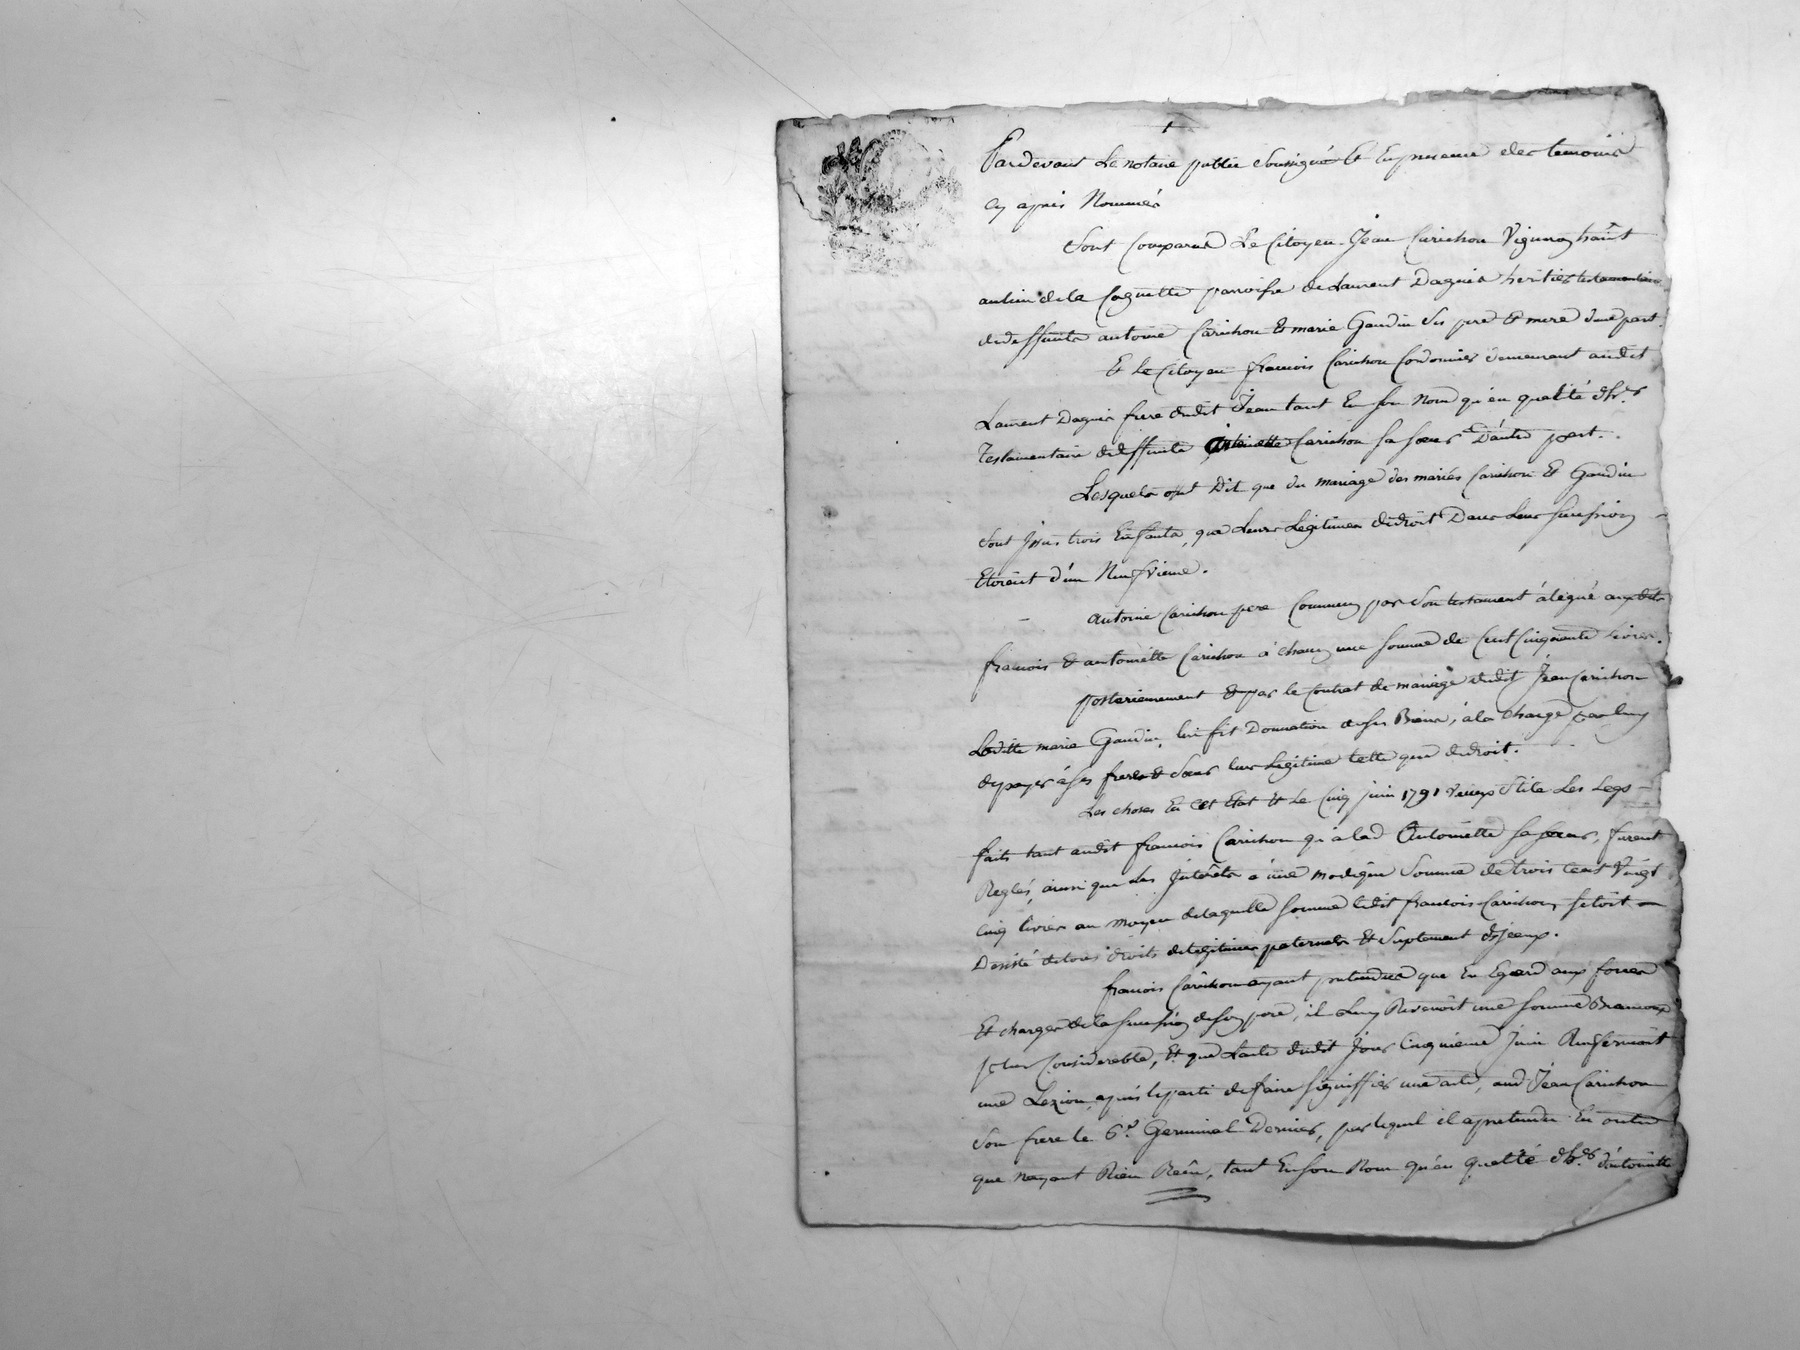 Pardevant Le notaire public soussigné & En presence des temoins
Cy apres Nommés
Sont Comparus Le Citoyen Jean Carichon Vigneron habt
au lieu de la Coquette parroisse de Laurent Dagnis heritier testamentaire
de deffunts antoine Carichon & marie Gaudin ses pere & mere d'une part.
& Le Citoyen francois Carichon Cordonnier demeurant audit
Laurent Dagnis frere dudit Jean tant En son Nom qu'en qualité d'hr
Testamentaire de deffunte antoinette Carichon sa soeur D'autre part.
Lesquels ont Dit que du mariage des mariés Carichon & Gaudin
sont issus trois Enfants, que Leurs Legitimes de droit Dans Leur succession
Etoient d'un Neufvieme.
Antoine Carichon pere Commun par son testament a légué auxdits
francois & antoinette Carichon a chacun une somme de Cent Cinquante Livres.
posterieurement & par le Contrat de mariage dudit Jean Carichon
Ladite marie Gaudin, lui fit Donnation de ses Biens, a la Charge par luy
de payer a ses freres & Soeur leur Legitime telle que de droit.
Les choses En Cet Etat & Le Cinq juin 1791 vieux Stile Les Legs
faits tant audit francois Carichon qu'a lad Antoinette sa soeur, furent
Reglés, ainsi que les Interets a une modique Somme de trois Cent Vingt
Cinq livres au moyen de laquelle somme ledit francois Carichon setoit
Desisté de tous droits de legitimes paternels & Suplement d'Iceux.
francois Carichon ayant pretendu que Eu Egard aux forces
Et charges de la succession de son pere, il Luy Revenoit une somme Beaucoup
plus Considerable, & que Lacte dudit Jour Cinquieme Juin Renfermant
une Lezion, a pris le parti de faire signiffier un acte, aud Jean Carichon
son frere le 6e Germinal Dernier, par lequel il a pretendu En outre
que nayant Rien Recu, tant En son Nom qu'en qualité d'hr d'antoinette